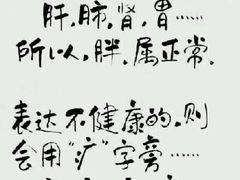 肝，肺，肾，胃……
所以，胖，属正常。
表达不健康的，则
会用“疒”字旁……